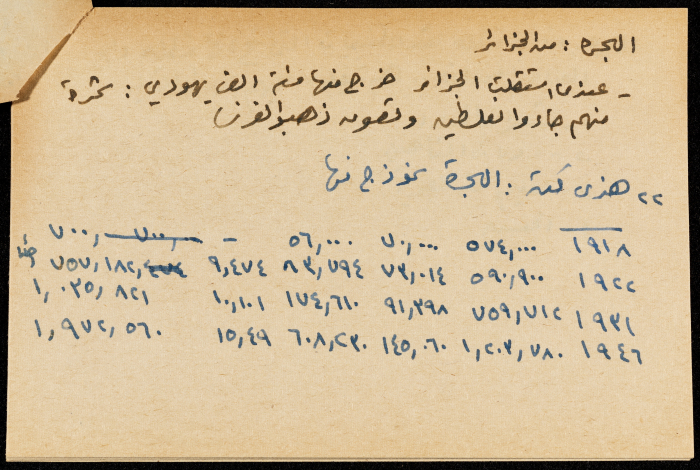 الهجرة : من الجزائر
- عندما استقلت الجزائر خرج منها مئة الف يهودي : عشرة
منهم جاءوا لفلسطين وتسعون ذهبوا لفرنسا
٢٢ هنري كتن : الهجرة نموذج منها
١٩١٨ ٥٧٤,٠٠٠ ٧٠,٠٠٠ ٥٦,٠٠٠ - ٧٠٠,٠٠٠ ٧٠٠,
١٩٢٢ ٥٩٠,٩٠٠ ٧٣,٠١٤ ٨٣,٧٩٤ ٩,٤٧٤ ٧٥٧,١٨٢
١٩٣١ ٧٥٩,٧١٢ ٩١,٣٩٨ ١٧٤,٦١٠ ١٠,١٠١ ١,٠٣٥,٨٢١
١٩٤٦ ١,٢٠٣,٧٨٠ ١٤٥,٠٦٠ ٦٠٨,٢٣٠ ١٥,٤٩ ١,٩٧٢,٥٦٠